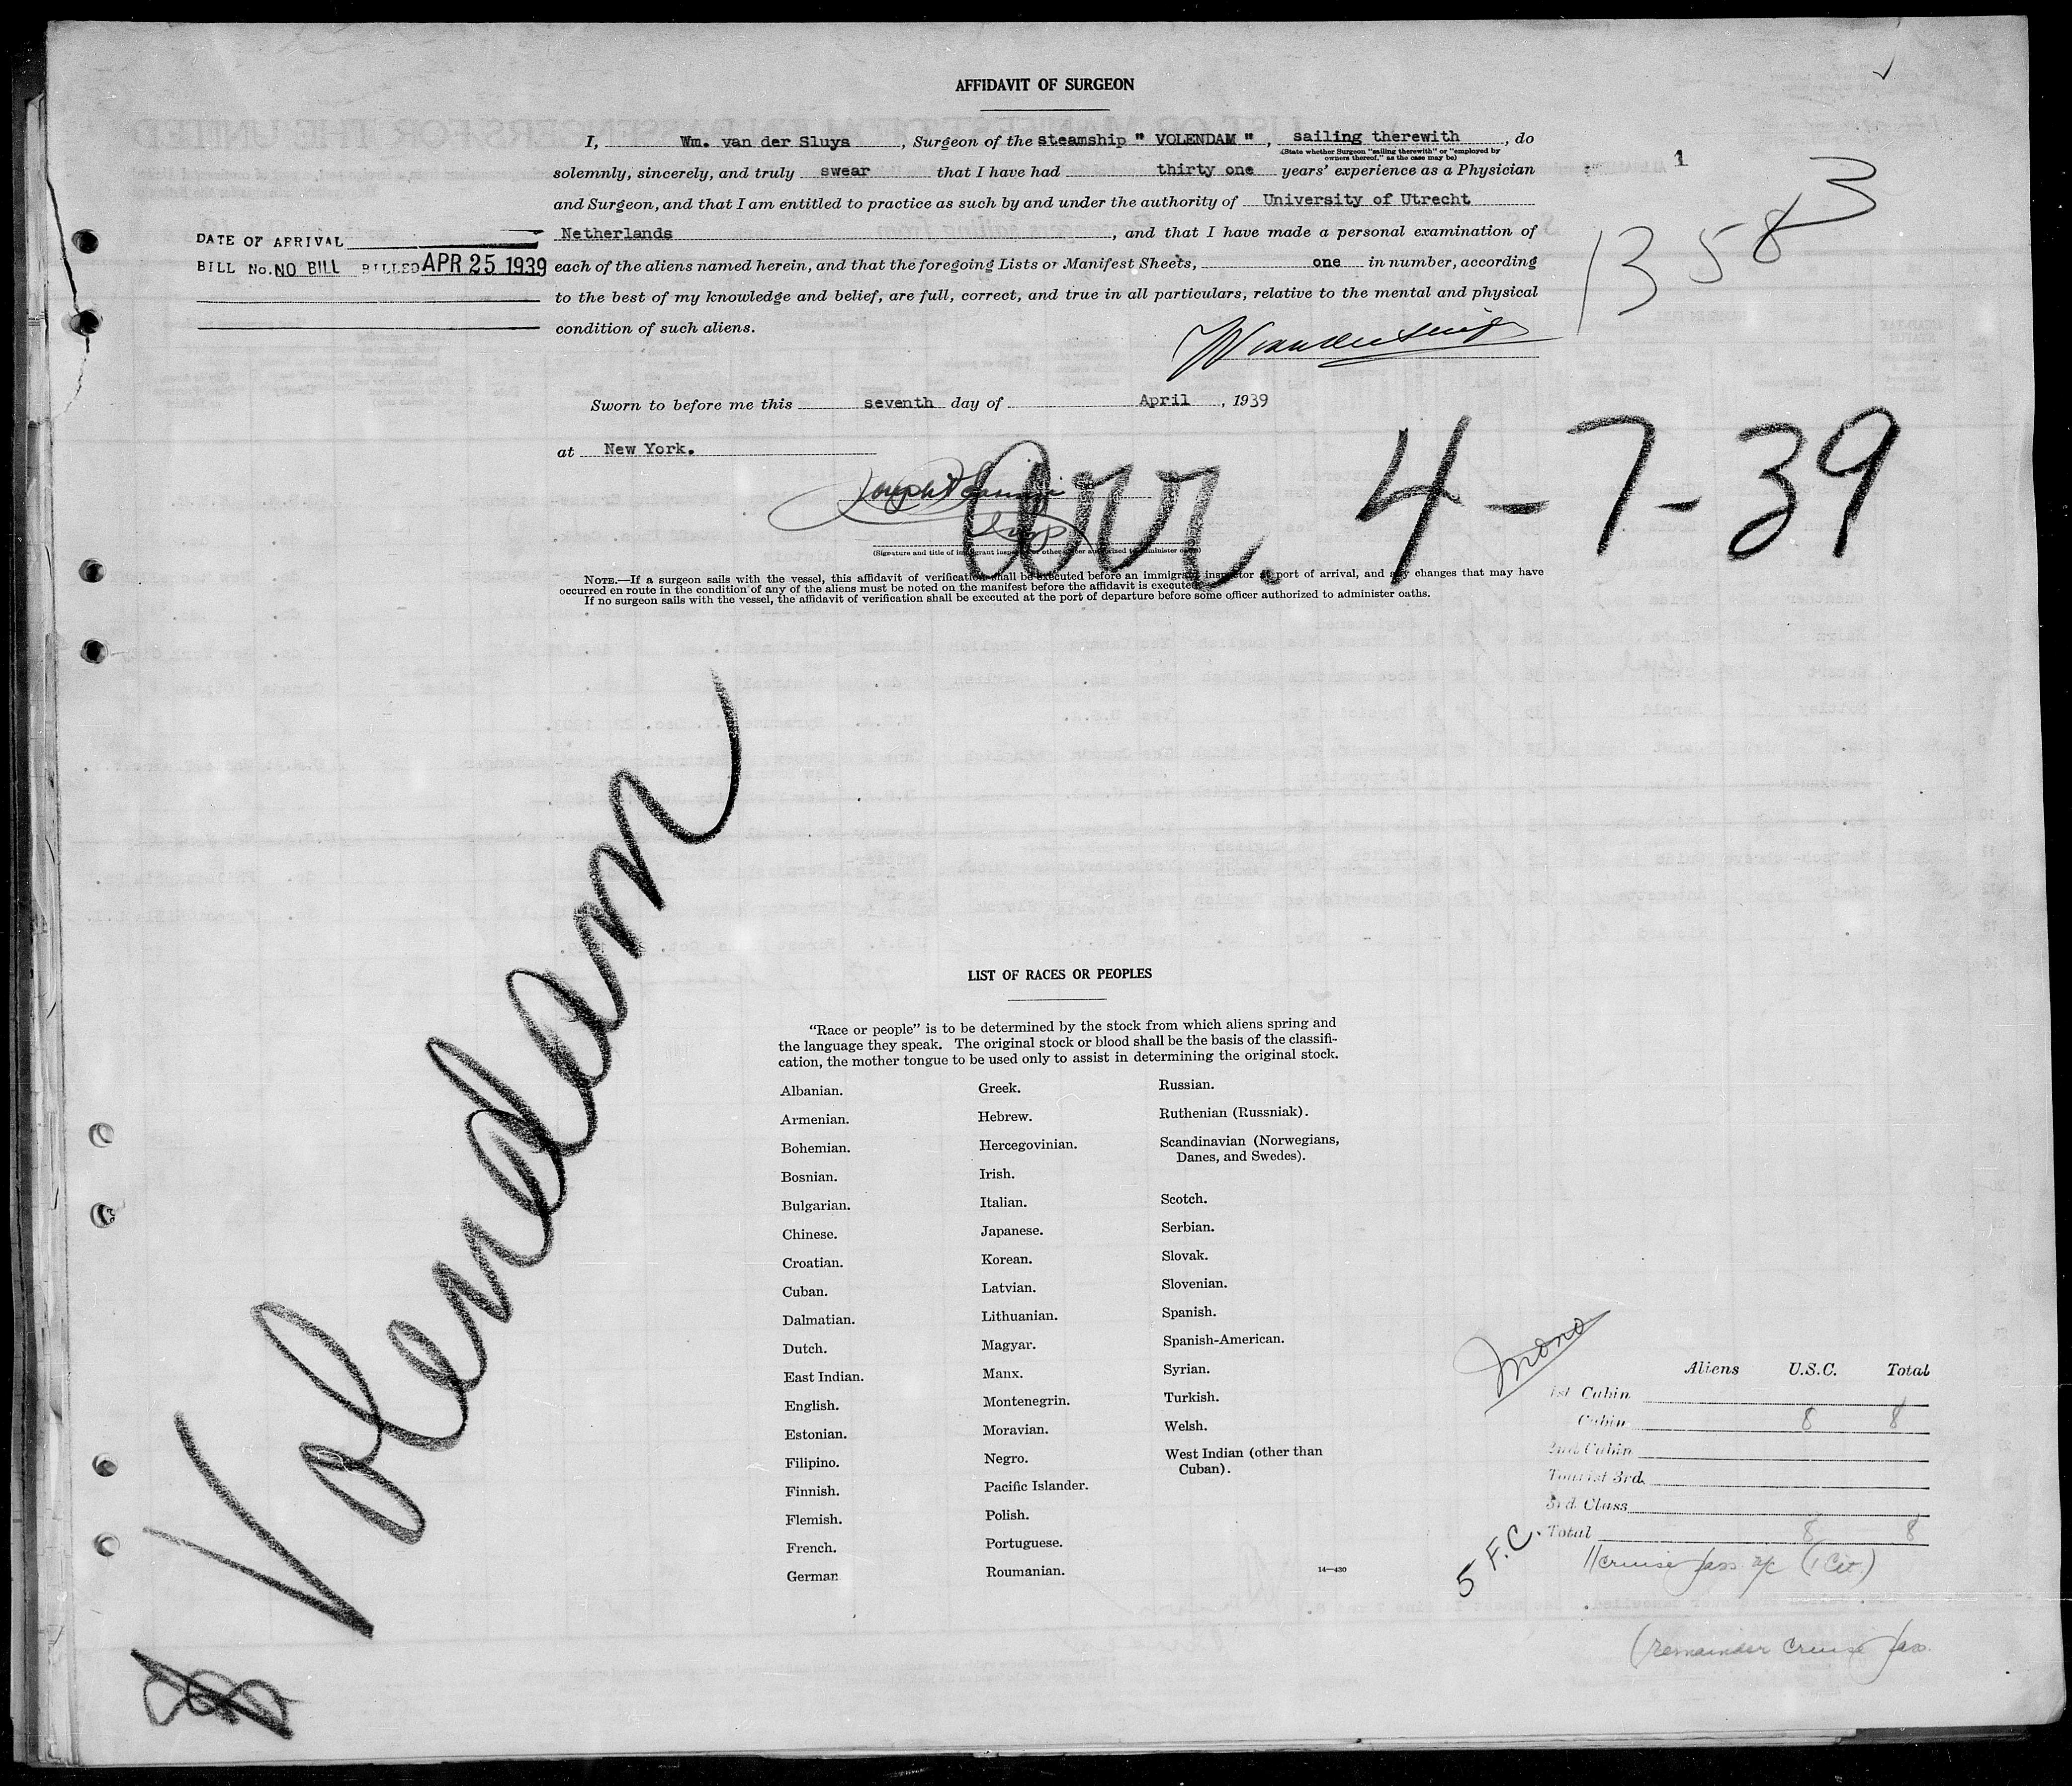 AFFIDAVIT OF SURGEON
I, Wm. van der Sluys, Surgeon of the steamship " VOLENDAM ", sailing therewith, do
(State whether Surgeon "sailing therewith" or "employed by
owners thereof," as the case may be)
solemnly, sincerely, and truly swear that I have had thirty one years' experience as a Physician
and Surgeon, and that I am entitled to practice as such by and under the authority of University of Utrecht
Netherlands, and that I have made a personal examination of
each of the aliens named herein, and that the foregoing Lists or Manifest Sheets, one in number, according
to the best of my knowledge and belief, are full, correct, and true in all particulars, relative to the mental and physical
condition of such aliens.
1
13583
DATE OF ARRIVAL
BILL No. NO BILL BILLED APR 25 1939
Sworn to before me this seventh day of April, 1939
at New York.
Arr. 4-7-39
Insp
(Signature and title of immigrant inspector or other officer authorized to administer oaths)
NOTE.—If a surgeon sails with the vessel, this affidavit of verification shall be executed before an immigrant inspector at port of arrival, and any changes that may have
occurred en route in the condition of any of the aliens must be noted on the manifest before the affidavit is executed.
If no surgeon sails with the vessel, the affidavit of verification shall be executed at the port of departure before some officer authorized to administer oaths.
Volendam
LIST OF RACES OR PEOPLES
"Race or people" is to be determined by the stock from which aliens spring and
the language they speak. The original stock or blood shall be the basis of the classifi-
cation, the mother tongue to be used only to assist in determining the original stock.
Albanian.
Armenian.
Bohemian.
Bosnian.
Bulgarian.
Chinese.
Croatian.
Cuban.
Dalmatian.
Dutch.
East Indian.
English.
Estonian.
Filipino.
Finnish.
Flemish.
French.
German
Greek.
Hebrew.
Hercegovinian.
Irish.
Italian.
Japanese.
Korean.
Latvian.
Lithuanian.
Magyar.
Manx.
Montenegrin.
Moravian.
Negro.
Pacific Islander.
Polish.
Portuguese.
Roumanian.
Russian.
Ruthenian (Russniak).
Scandinavian (Norwegians,
Danes, and Swedes).
Scotch.
Serbian.
Slovak.
Slovenian.
Spanish.
Spanish-American.
Syrian.
Turkish.
Welsh.
West Indian (other than
Cuban).
14—430
Mono
Aliens U.S.C. Total
1st Cabin
Cabin 8 8
2nd Cabin
Tourist 3rd.
3rd Class
Total 8 8
5 F.C.
11 cruise pass (1 Cit.)
(remainder cruise pass.